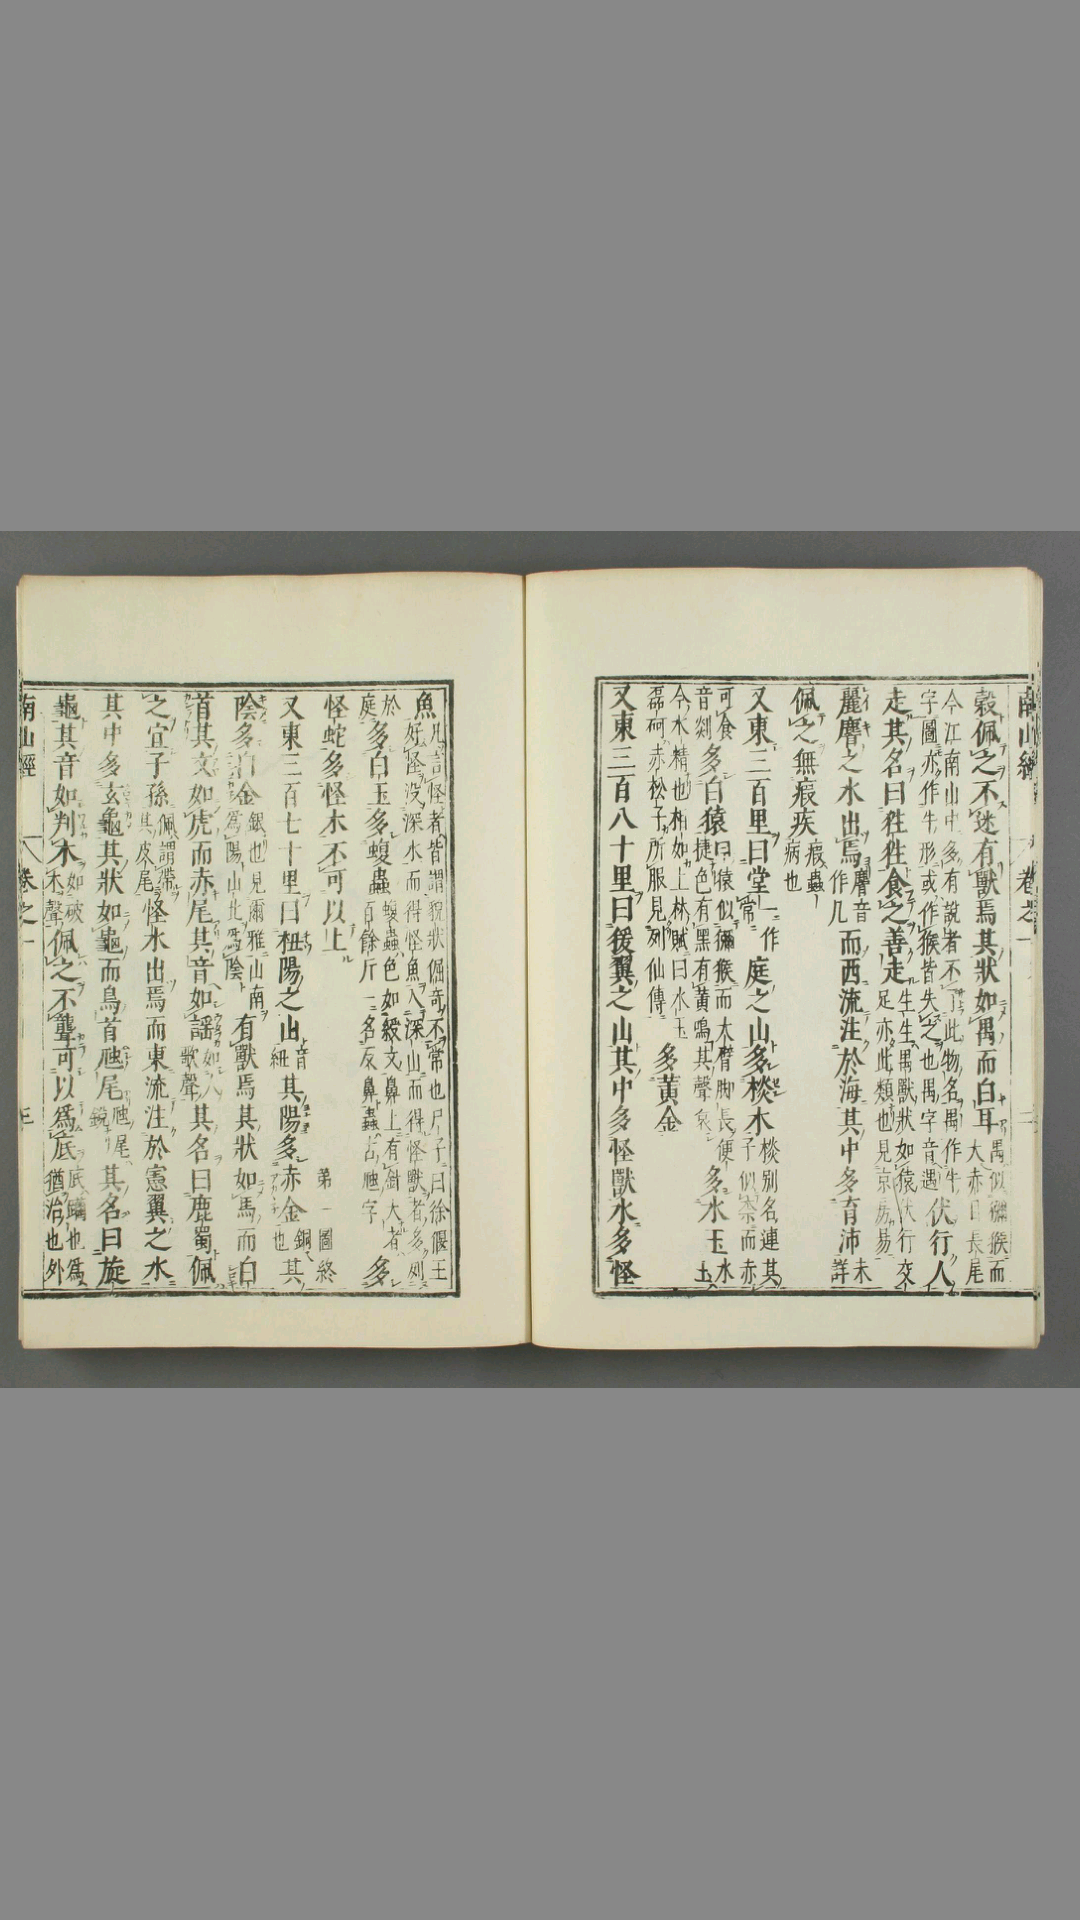 穀佩之不迷有獸焉其狀如禺而白耳禺似獼猴而大赤目長尾
今江南山中多有說者不了此物名禺作牛字圖亦作牛形或作猴皆失之也禺字音遇伏行人
走其名曰狌狌食之善走生生禺獸狀如猿伏行交足亦此類也見京房易
麗𪊨之水出焉𪊨音作几而西流注於海其中多育沛未詳
佩之無瘕疾瘕蟲病也
又東三百里曰堂一作常庭之山多棪木棪别名連其子似柰而赤
可食音剡多白猿曰猿似獼猴而大臂脚長便捷色有黑有黃鳴其聲哀多水玉水玉
今水精也相如上林賦曰水玉磊砢赤松子所服見列仙傳多黃金
又東三百八十里曰猨翼之山其中多怪獸水多怪
魚凡言怪者皆謂貌狀倔奇不常也尸子曰徐偃王好怪没深水而得怪魚入深山而得怪獸者多列
於庭多白玉多蝮蟲蝮蟲色如綬文鼻上有針大者百餘斤一名反鼻蟲古虺字多
怪蛇多怪木不可以上 第一圖終
又東三百七十里曰杻陽之山音紐其陽多赤金銅也其
陰多白金銀也見爾雅山南為陽山北為陰有獸焉其狀如馬而白
首其文如虎而赤尾其音如謡如人歌聲其名曰鹿蜀佩
之宜子孫佩謂帶其皮尾怪水出焉而東流注於憲翼之水
其中多玄龜其狀如龜而鳥首虺尾虺尾鏡其名曰旋
龜其音如判木如破木聲佩之不聾可以為底底躪也為猶治也外
南山經 卷之一